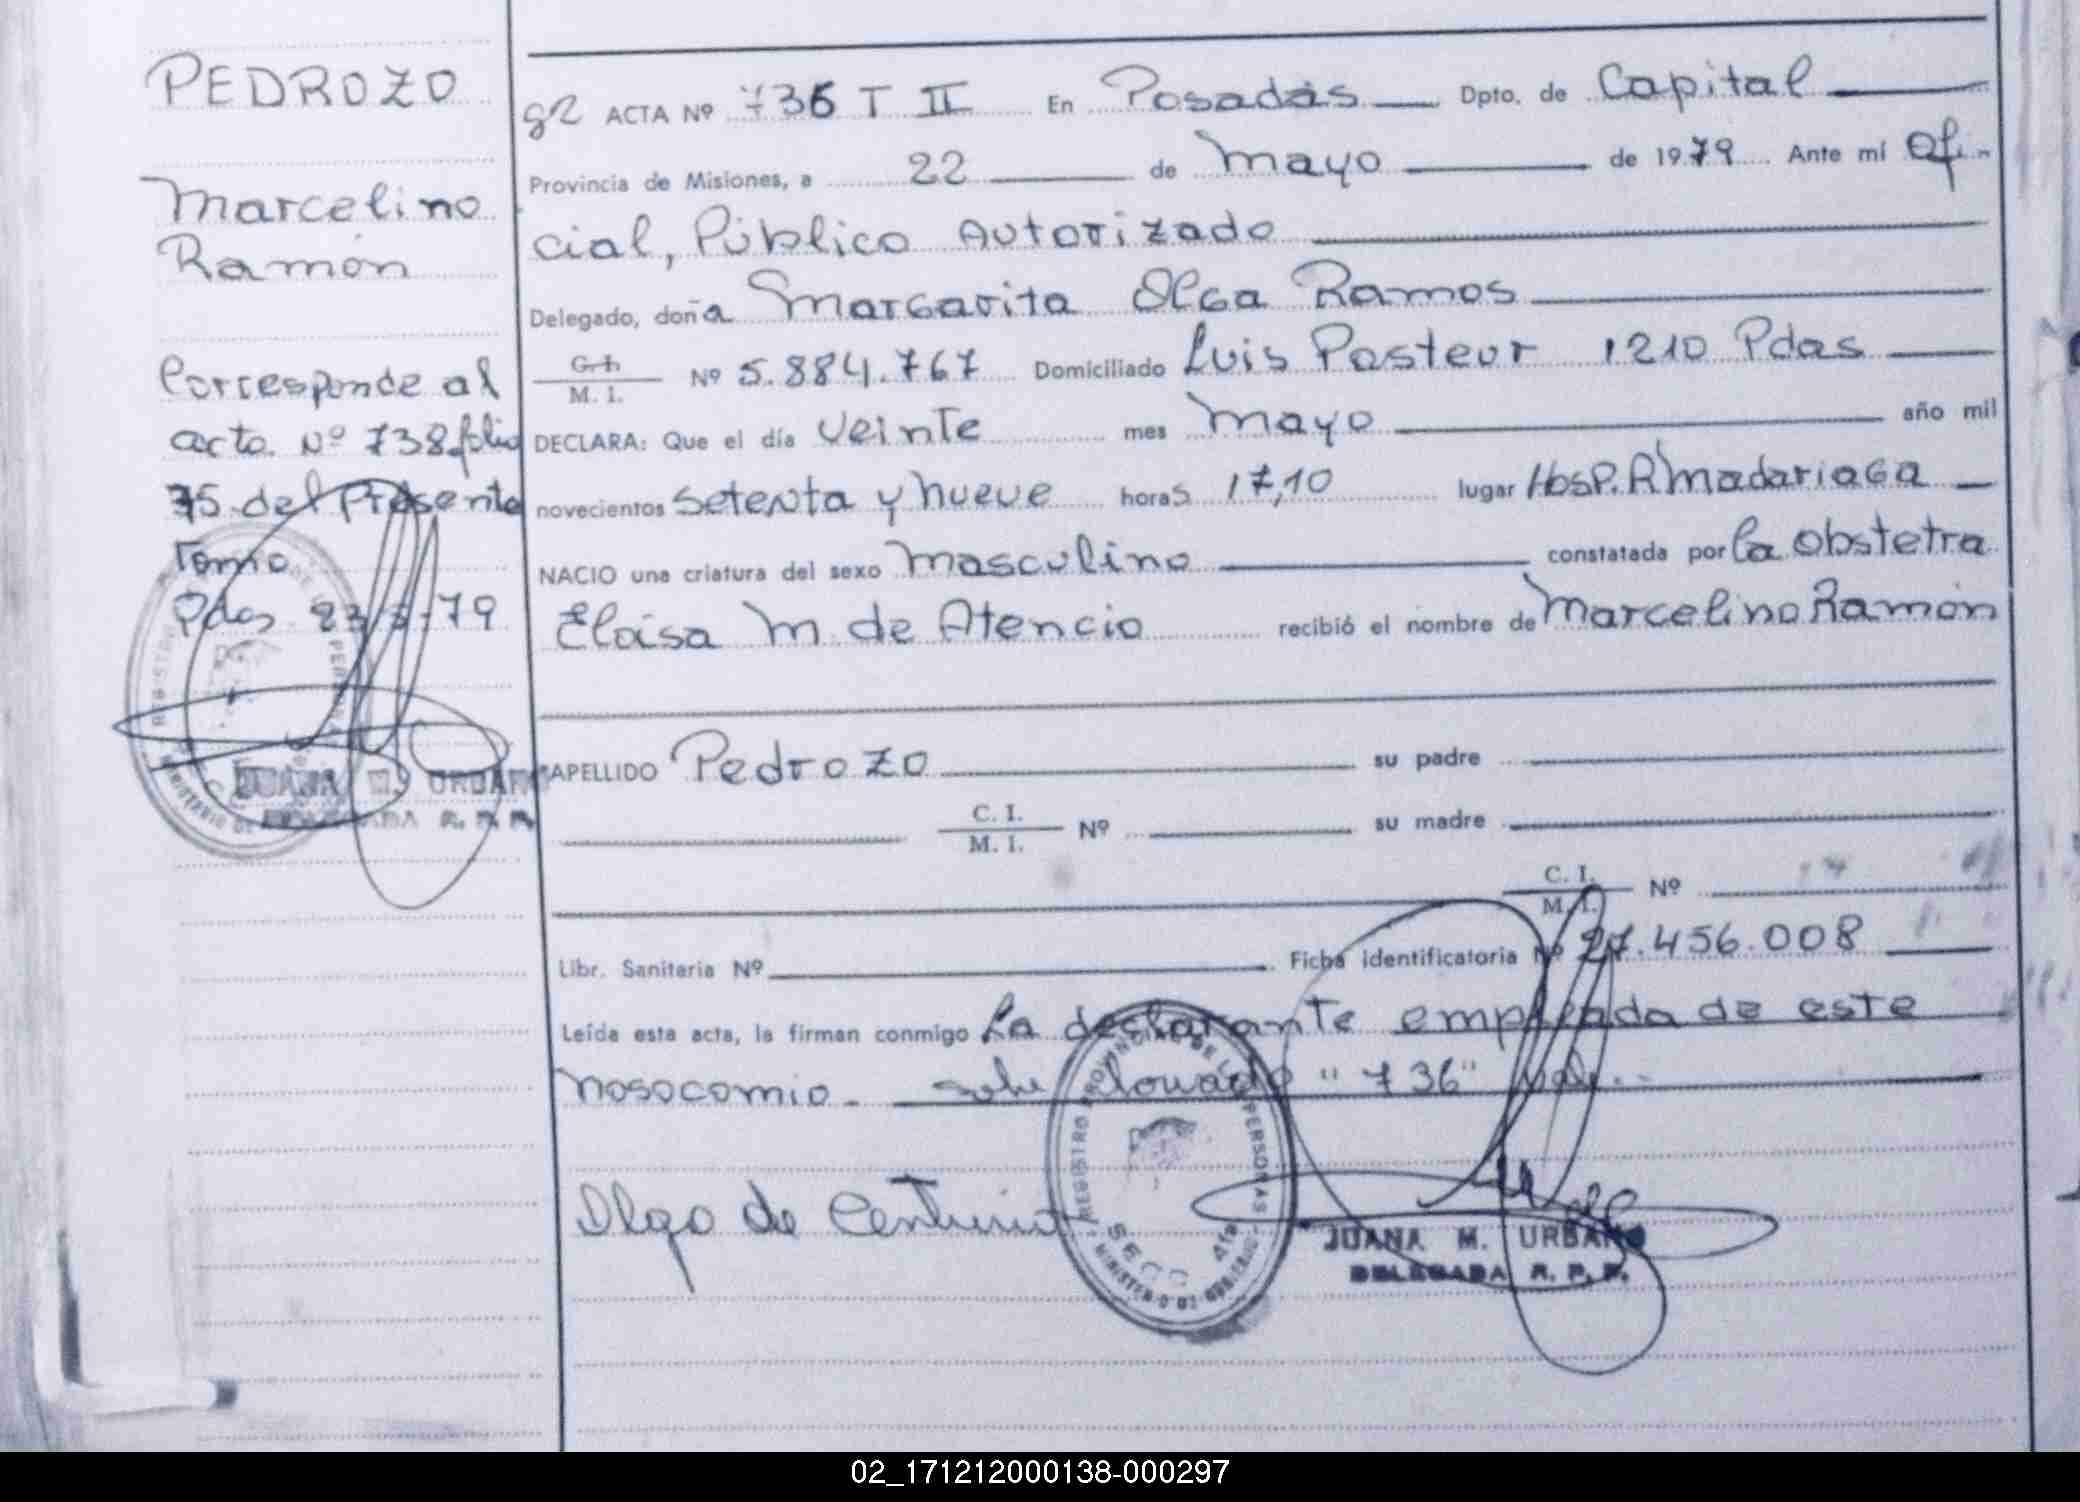 PEDROZO
Marcelino
Ramón
Corresponde al
acta. Nº 738 folio
75 del Presente
Tomo
Pdas 23/5/79
JUANA M. URBANO
g2 ACTA Nº 736 T II En Posadas Dpto. de Capital
Provincia de Misiones, a 22 de mayo de 1979 Ante mí Ofi-
cial, Público Autorizado
Delegado, doña Margarita Olga Ramos
C. I. / M. I. Nº 5.884.767 Domiciliado Luis Pasteur 1210 Pdas
DECLARA: Que el día veinte mes mayo año mil
novecientos setenta y nueve horas 17,10 lugar Hosp. R Madariaga
NACIO una criatura del sexo masculino constatada por la obstetra
Eloisa M. de Atencio recibió el nombre de Marcelino Ramón
APELLIDO Pedrozo su padre
C. I. / M. I. Nº su madre
C. I. / M. I. Nº
Libr. Sanitaria Nº Ficha identificatoria Nº 27.456.008
Leída esta acta, la firman conmigo La declarante empleada de este
nosocomio. "736" vale.-
REGISTRO PROVINCIAL DE LAS PERSONAS
SECC
MINISTERIO DE GOBIERNO
Olga de
JUANA M. URBANO
DELEGADA R. P. P.
02_171212000138-000297